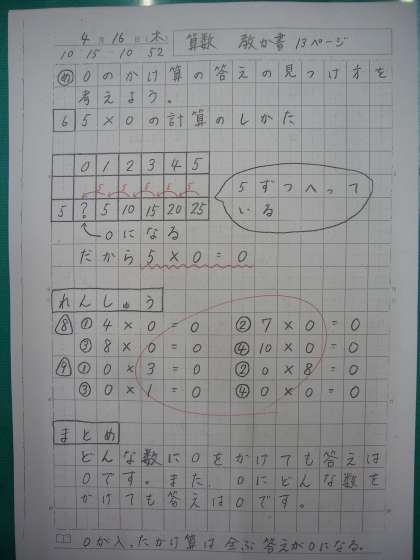 4月16日(木) 算数 教か書 13ページ
10 15 - 10 52
め 0のかけ算の答えの見つけ方を
考えよう。
6 5×0の計算のしかた
0 1 2 3 4 5
5 5 5 5 5
5 ? 5 10 15 20 25
5ずつへって
いる
0になる
だから 5×0=0
れんしゅう
8 ① 4×0=0 ② 7×0=0
③ 8×0=0 ④ 10×0=0
9 ① 0×3=0 ② 0×8=0
③ 0×1=0 ④ 0×0=0
まとめ
どんな数に0をかけても答えは
0です。また、0にどんな数を
かけても答えは0です。
0が入ったかけ算は全ぶ答えが0になる。